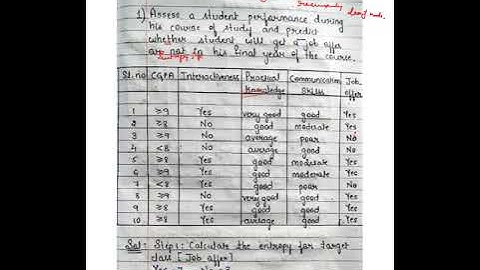 1) Assess a student performance during
his course of study and predict
whether student will get a job offer
are not in his final year of the course.
Sl.no CGPA Interactiveness Practical Knowledge Communication Skills Job offer
1 ≥9 Yes very good good Yes
2 ≥8 No good moderate Yes
3 ≥9 No average poor No
4 <8 No average good No
5 ≥8 Yes good moderate Yes
6 ≥9 Yes good moderate Yes
7 <8 Yes good poor No
8 ≥9 No very good good Yes
9 ≥8 Yes good good Yes
10 ≥8 Yes average good Yes
Sol: Step1: Calculate the entropy for target
class [Job offer]